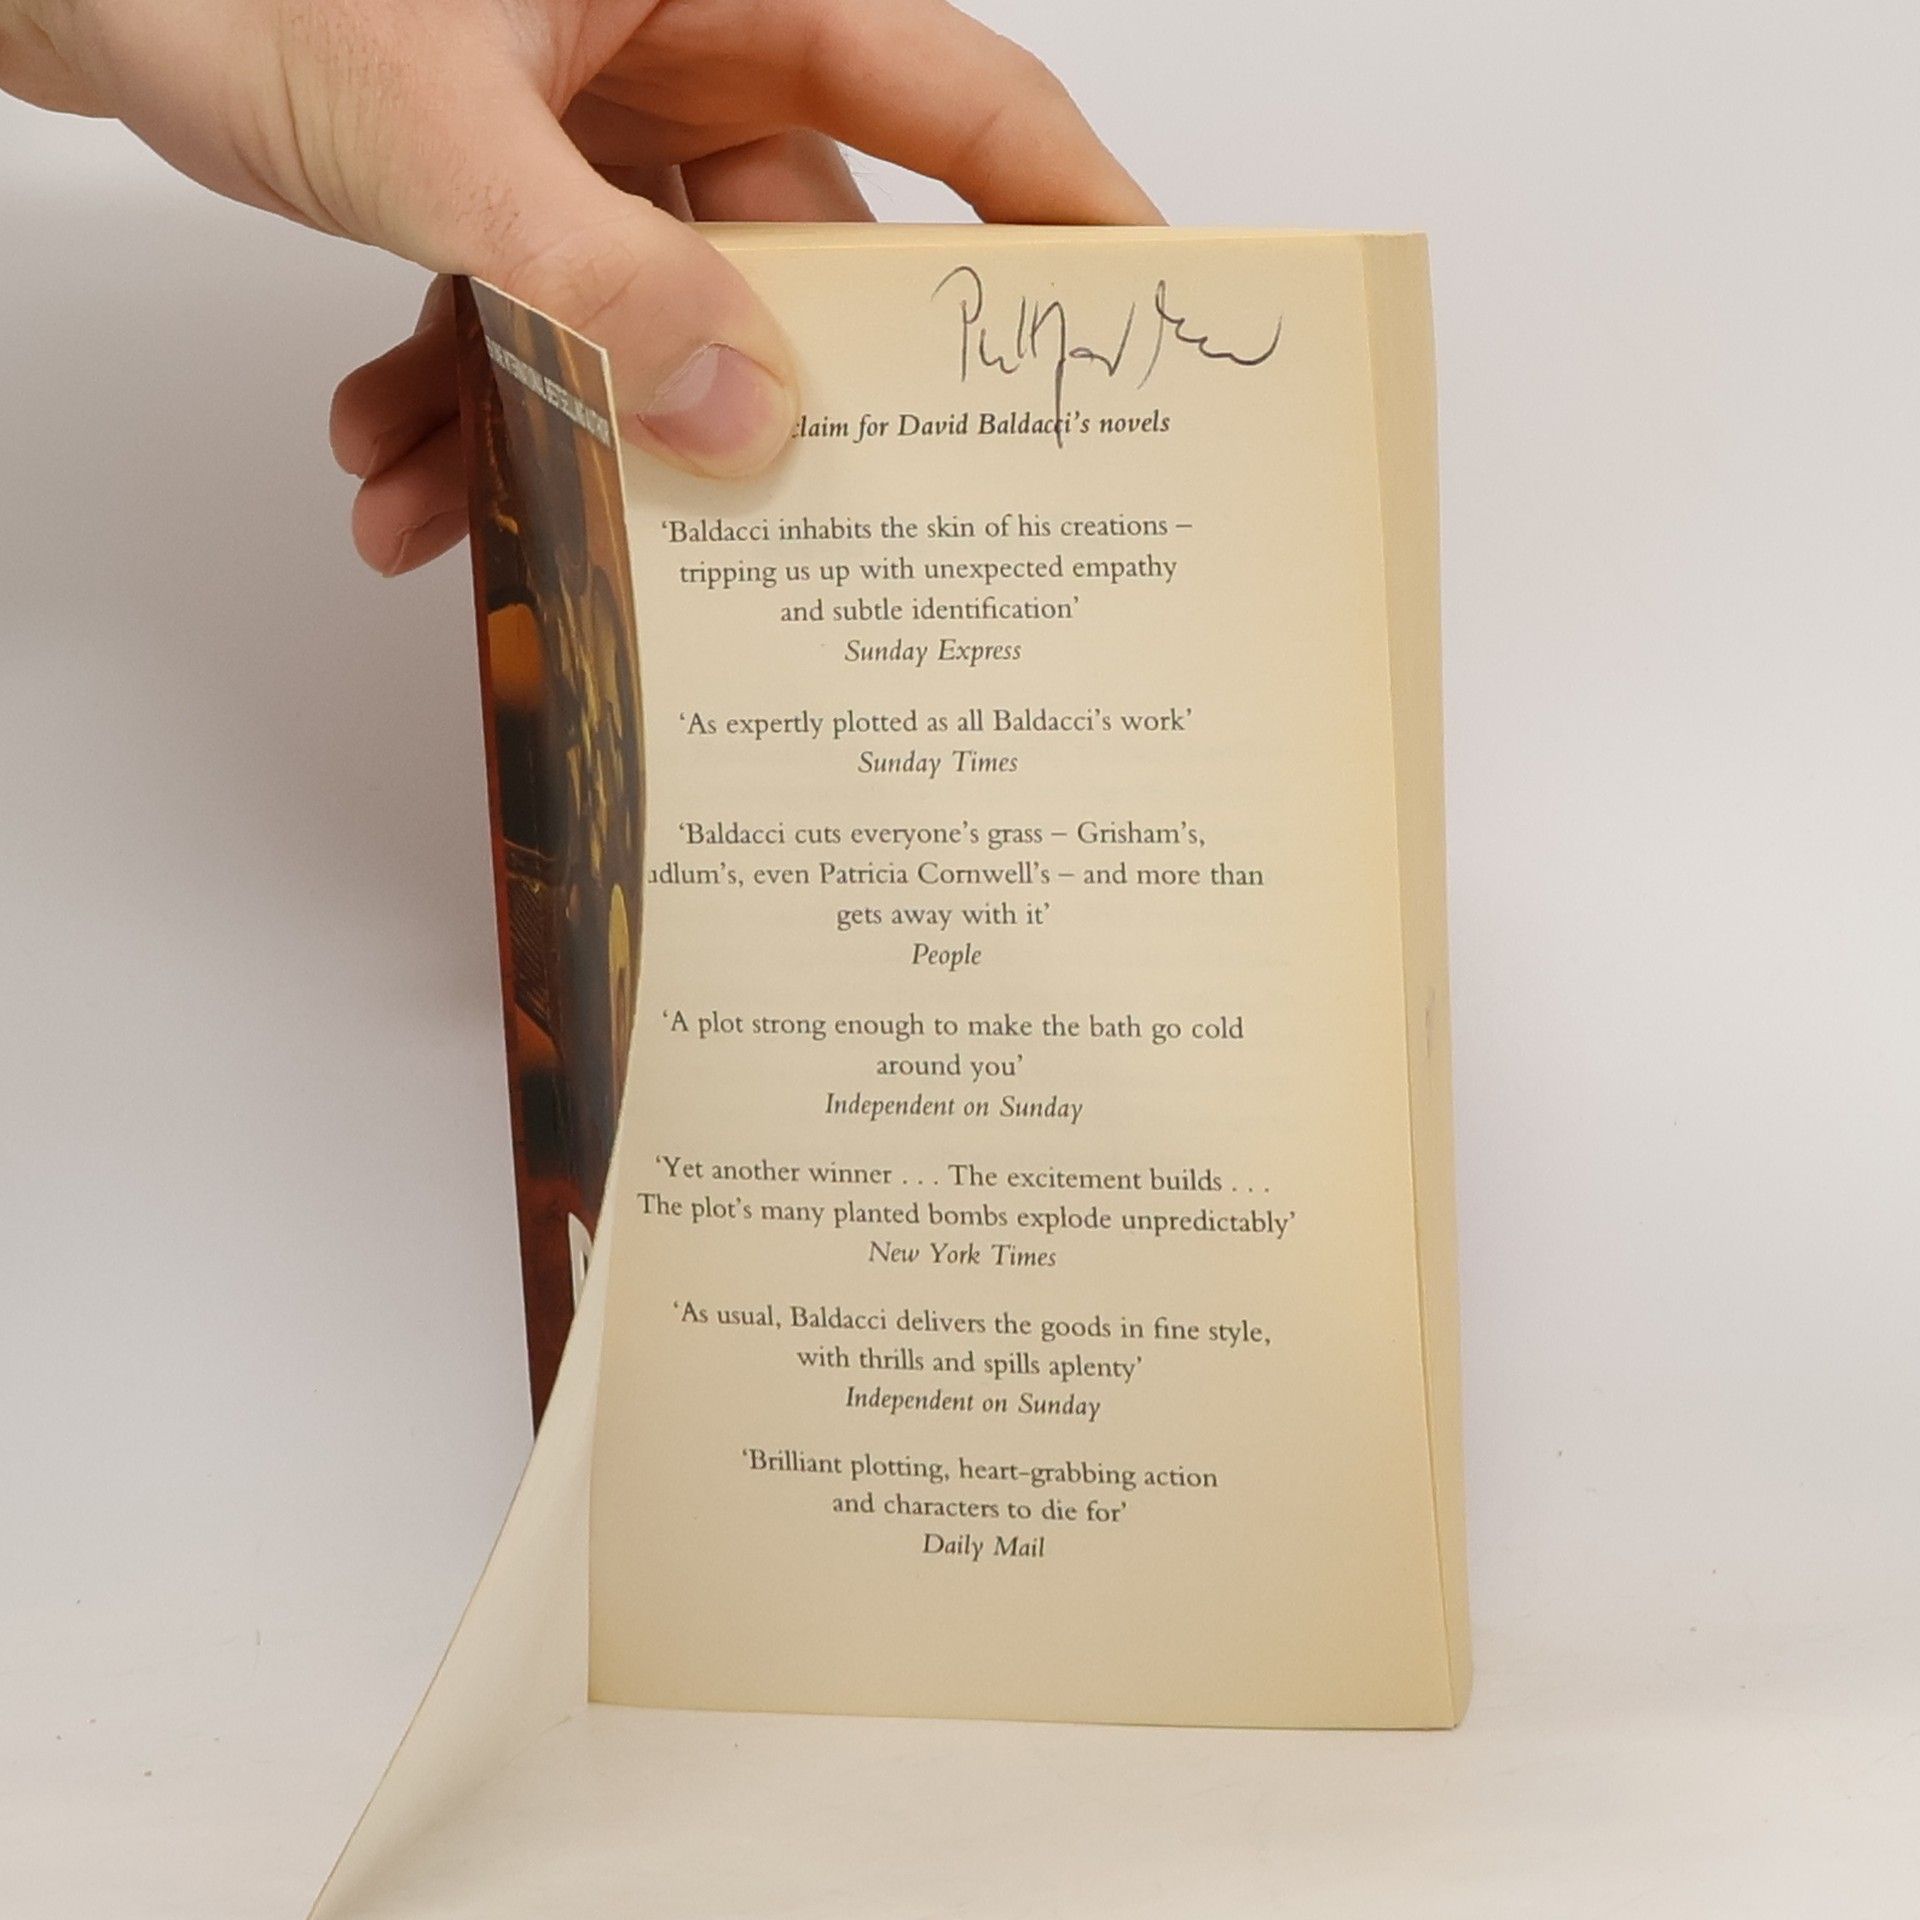 claim for David Baldacci's novels
‘Baldacci inhabits the skin of his creations –
tripping us up with unexpected empathy
and subtle identification’
Sunday Express
‘As expertly plotted as all Baldacci’s work’
Sunday Times
‘Baldacci cuts everyone’s grass – Grisham’s,
udlum’s, even Patricia Cornwell’s – and more than
gets away with it’
People
‘A plot strong enough to make the bath go cold
around you’
Independent on Sunday
‘Yet another winner . . . The excitement builds . . .
The plot’s many planted bombs explode unpredictably’
New York Times
‘As usual, Baldacci delivers the goods in fine style,
with thrills and spills aplenty’
Independent on Sunday
‘Brilliant plotting, heart-grabbing action
and characters to die for’
Daily Mail